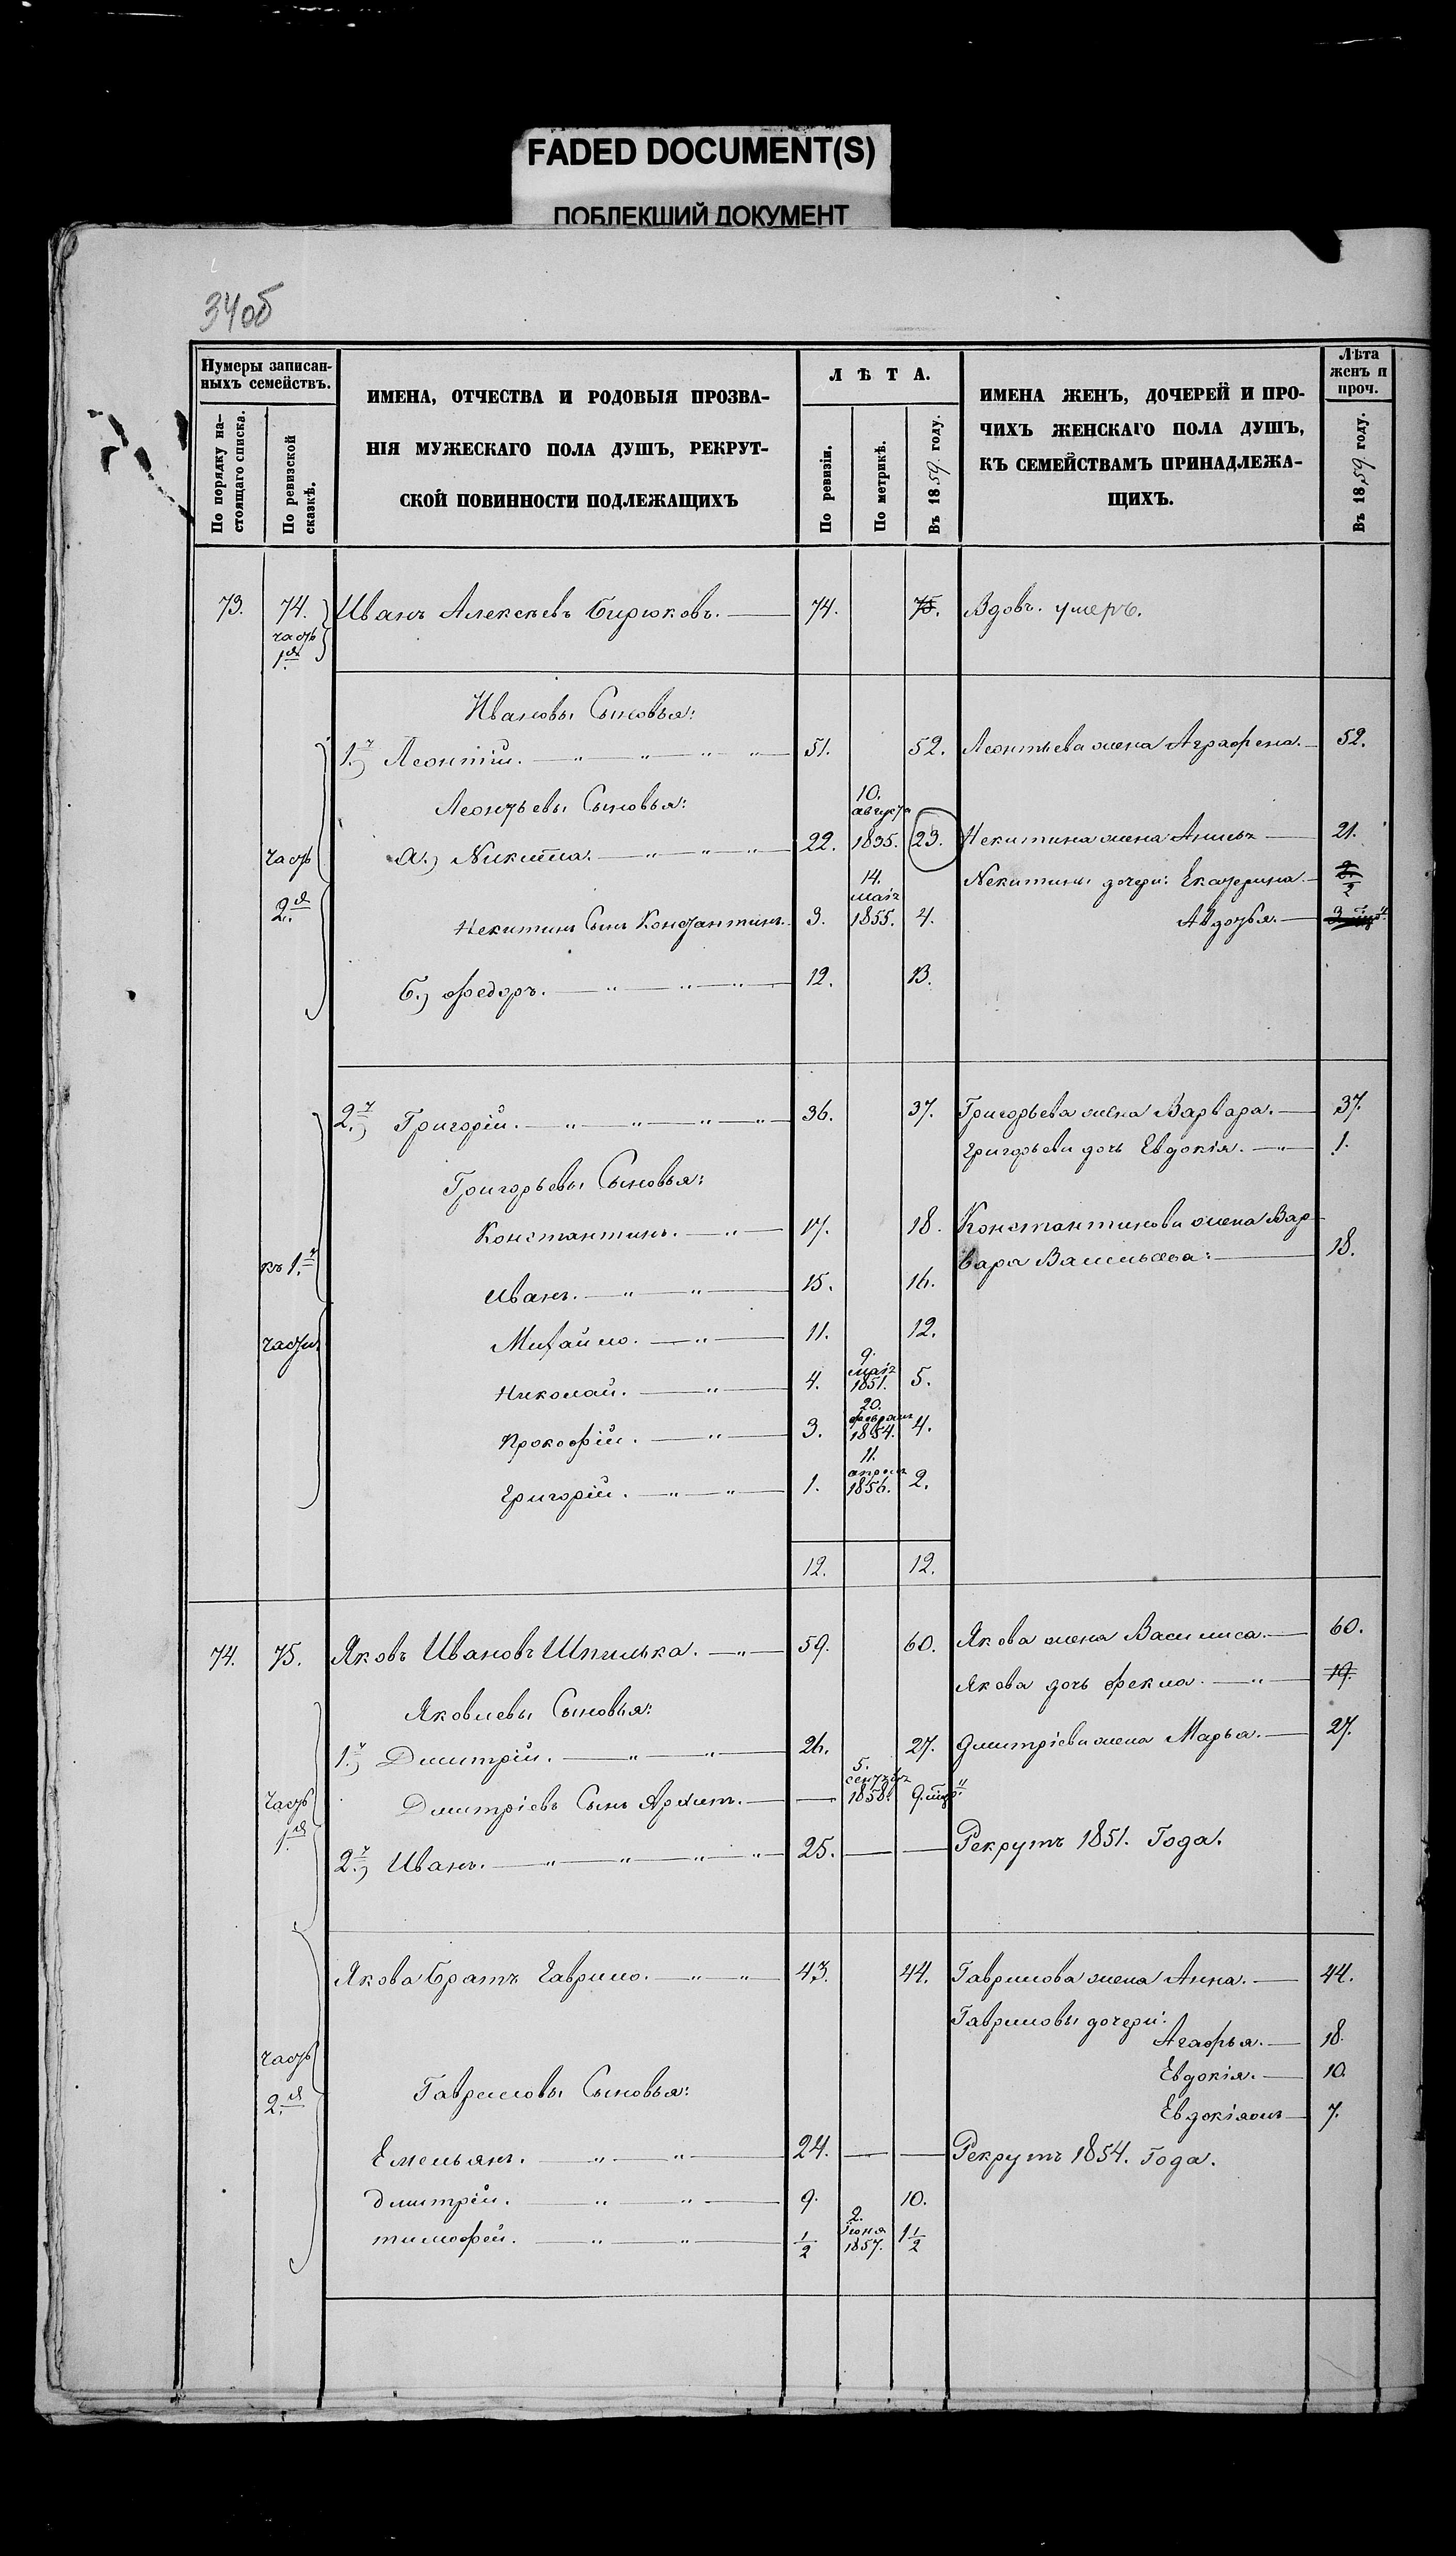 FADED DOCUMENT(S)
ПОБЛЕКШИЙ ДОКУМЕНТ
34об
Нумеры записан-
ныхъ семействъ.
По порядку на-
стоящаго списка.
По ревизской
сказкѣ.
ИМЕНА, ОТЧЕСТВА И РОДОВЫЯ ПРОЗВА-
НІЯ МУЖЕСКАГО ПОЛА ДУШЪ, РЕКРУТ-
СКОЙ ПОВИННОСТИ ПОДЛЕЖАЩИХЪ
ЛѢТА.
По ревизіи.
По метрикѣ.
Въ 1859 году.
ИМЕНА ЖЕНЪ, ДОЧЕРЕЙ И ПРО-
ЧИХЪ ЖЕНСКАГО ПОЛА ДУШЪ,
КЪ СЕМЕЙСТВАМЪ ПРИНАДЛЕЖА-
ЩИХЪ.
Лѣта
женъ и
проч.
Въ 1859 году.
73. 74. Иванъ Алексѣевъ Бирюковъ. 74. 75. Вдовъ. умеръ.
часть
1я
Ивановы Сыновья:
1.й) Леонтій. 51. 52. Леонтьева жена Аграфена. 52.
Леонтьевы Сыновья:
10.
августа
часть а.) Никита. 22. 1835. 23. Никитина жена 21.
14.
мая
Никитины дочери: Екатерина. 2
2.я Никитинъ Сынъ Константинъ. 3. 1855. 4. Авдотья.
б.) Федоръ. 12. 13.
2.й) Григорій. 36. 37. Григорьева жена Варвара. 37.
Григорьева дочь Евдокія. 1.
Григорьевы Сыновья:
Константинъ. 17. 18. Константинова жена Вар-
къ 1.й вара Васильева: 18.
Иванъ. 15. 16.
части Михайло. 11. 12.
9.
мая
Николай. 4. 1851. 5.
20.
февраля
Прокофій. 3. 1854. 4.
11.
апреля
Григорій. 1. 1856. 2.
12. 12.
74. 75. Яковъ Ивановъ Шпилька. 59. 60. Якова жена Василиса. 60.
Якова дочь Фекла. 19.
Яковлевы Сыновья:
1.й) Дмитрій. 26. 27. Дмитріева жена Марья. 27.
5.
часть Дмитріевъ Сынъ Архипъ. 1858.
1.я
2.й) Иванъ. 25. Рекрутъ 1851. Года.
Якова братъ Гаврило. 43. 44. Гаврилова жена Анна. 44.
Гавриловы дочери:
Агафья. 18.
часть Евдокія. 10.
2.я Гавриловы Сыновья:
7.
Емельянъ. 24. Рекрутъ 1854. Года.
Дмитрій. 9. 10.
2.
Іюня
Тимофей. 1/2 1857. 1 1/2